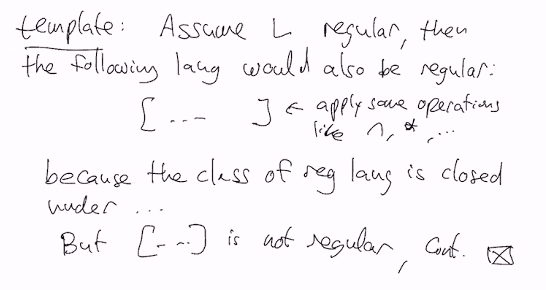 template: Assume L regular, then
the following lang would also be regular:
[ ... ] ← apply some operations
like ∩, *, ...
because the class of reg lang is closed
under ...
But [...] is not regular, Cont. ☒